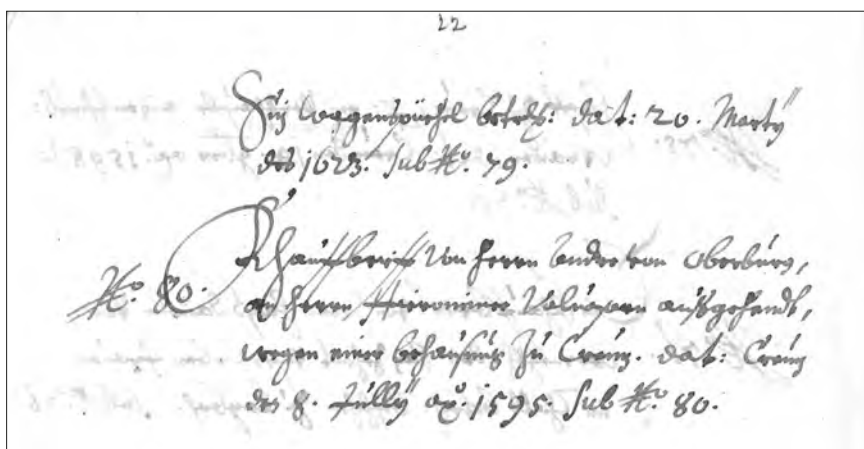 22
Zu Wagenspüchel betrefs: dat: 20. Marty
des 1623. sub No. 79.
No. 80. Khauffbrieff von Herrn Andre von Oberburg,
an Herrn Hieronimen Valvasorn außgehendt,
wegen einer behausung zu Crainb. dat: Crainb
des 8. Jully ao. 1595. sub No. 80.